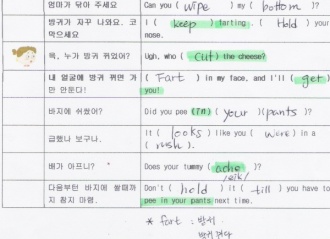 엄마가 닦아 주세요 Can you ( wipe ) my ( bottom )?
방귀가 자꾸 나와요. 코 막으세요 I ( keep ) farting. ( Hold ) your nose.
욱, 누가 방귀 뀌었어? Ugh, who ( cut) the cheese?
내 얼굴에 방귀 뀌면 가만 안둔다! ( Fart ) in my face, and I'll ( get) you!
바지에 쉬했어? Did you pee (in) ( your )(pants )?
급했나 보구나. It ( looks ) like you ( were) in a ( rush ).
배가 아프니? Does your tummy ( ache )?
[eik]
다음부턴 바지에 쌀때까지 참지 마렴. Don't ( hold ) it ( till ) you have to pee in your pants next time.
* fart : 방귀
방귀 뀌다